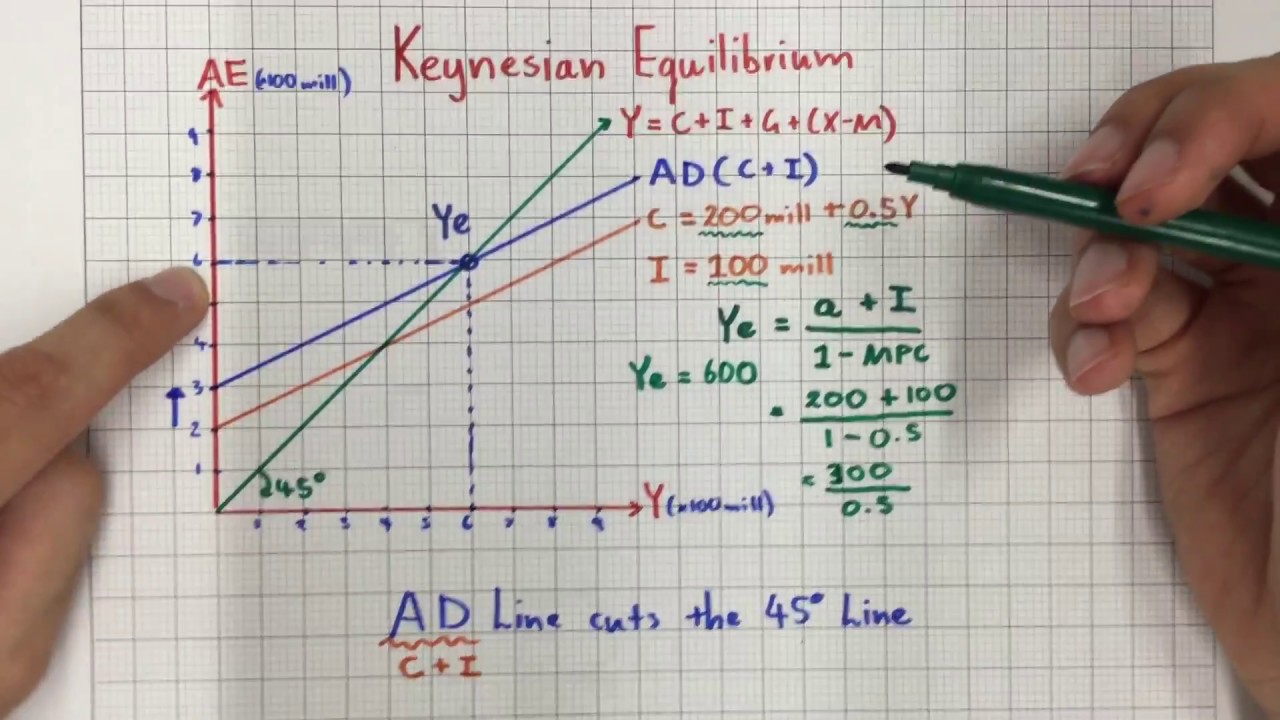 Keynesian Equilibrium
AE (x100 mill)
Y = C + I + G + (X-M)
AD (C + I)
C = 200 mill + 0.5Y
I = 100 mill
Ye
9
8
7
6
4
3
2
1
45°
1 2 3 4 5 6 7 8 9
Y (x100 mill)
Ye = a + I
1 - MPC
Ye = 600
= 200 + 100
1 - 0.5
= 300
0.5
AD Line cuts the 45° Line
C + I